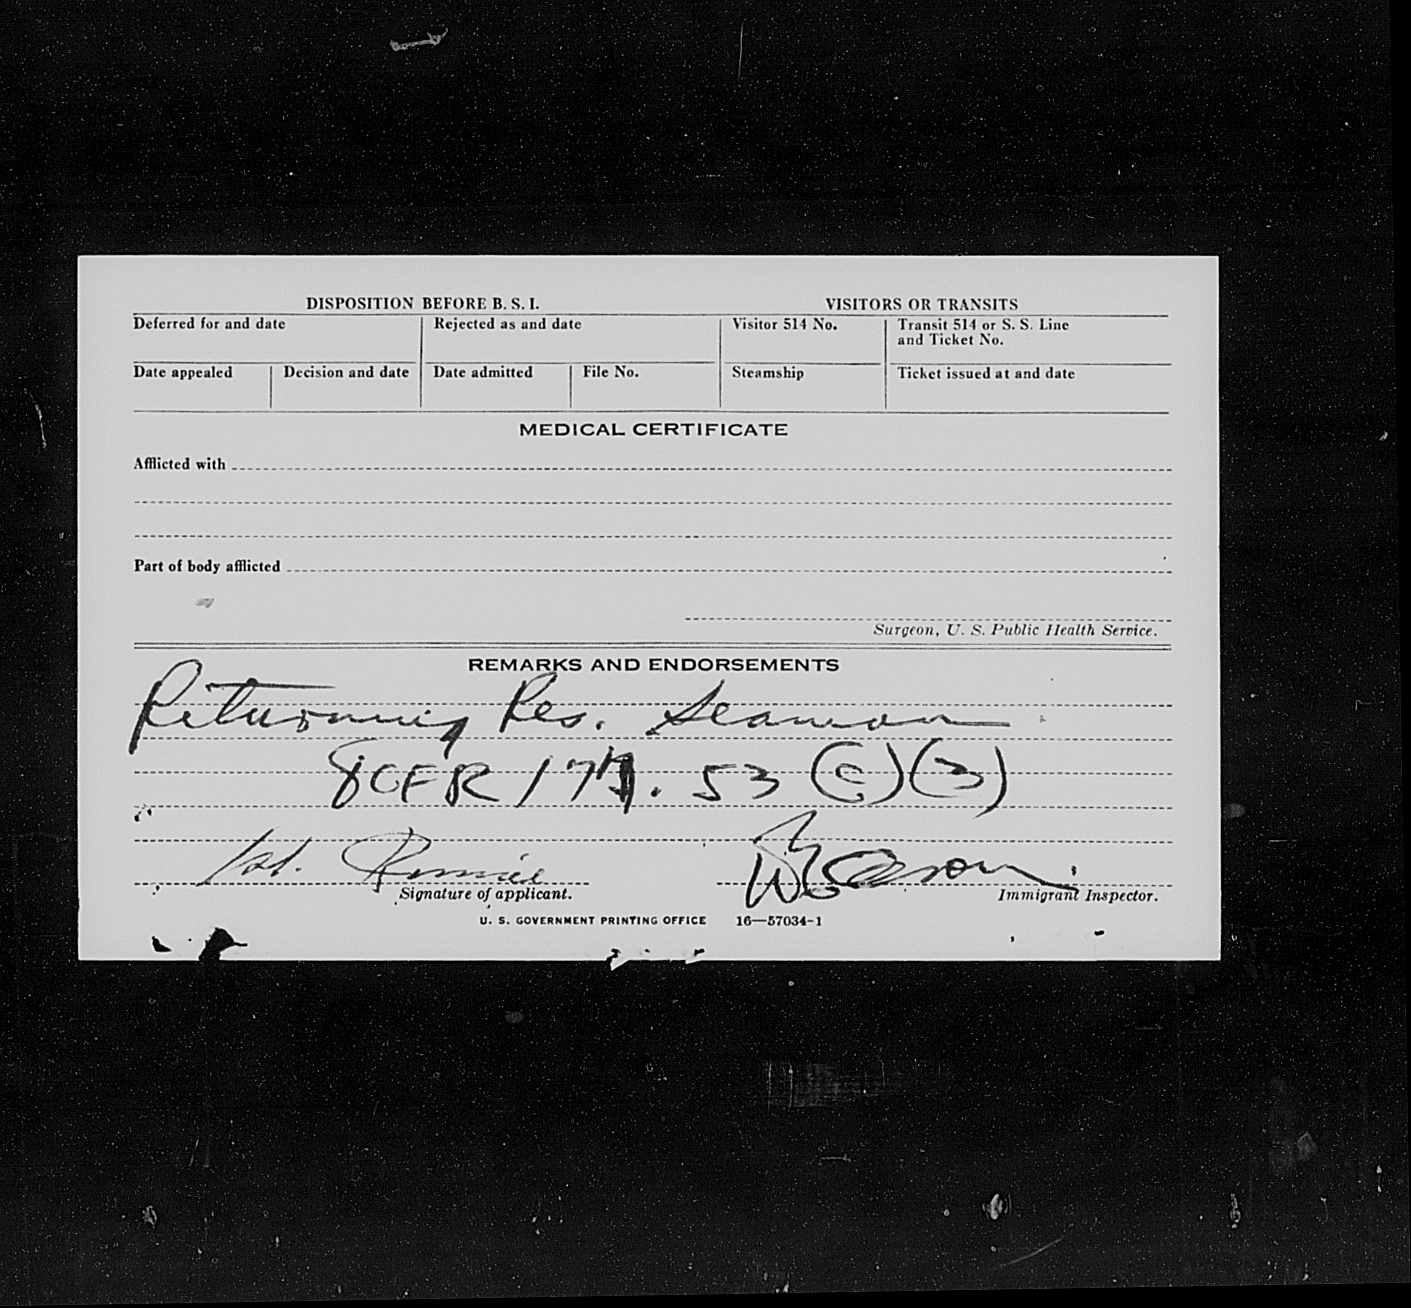 DISPOSITION BEFORE B. S. I.
VISITORS OR TRANSITS
Deferred for and date
Rejected as and date
Visitor 514 No.
Transit 514 or S. S. Line and Ticket No.
Date appealed
Decision and date
Date admitted
File No.
Steamship
Ticket issued at and date
MEDICAL CERTIFICATE
Afflicted with
Part of body afflicted
Surgeon, U. S. Public Health Service.
REMARKS AND ENDORSEMENTS
Returning Res. Seaman
8CFR . 53 (c) (3)
Signature of applicant.
Immigrant Inspector.
U. S. GOVERNMENT PRINTING OFFICE 16—57034-1